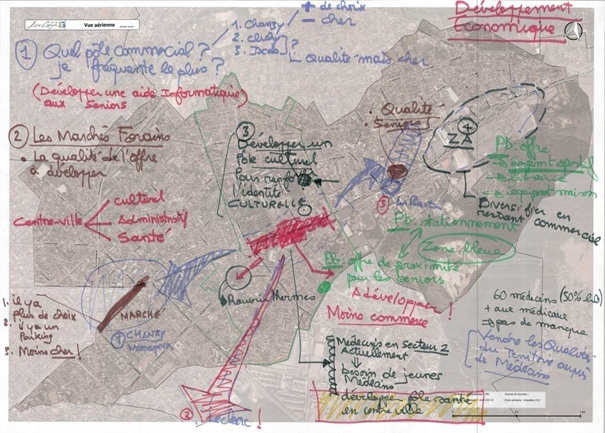 Vue aérienne
Développement
Économique
+ de choix
- cher
1. Chanzy
2. Clichy
3.
Qualité mais cher
① Quel pôle commercial ?
je fréquente le plus ?
(Développer une aide Informatique)
aux Seniors
② Les Marchés Forains
• La qualité de l'offre
à développer
③
Développer un
Pôle culturel
Pour renforcer
l'identité
CULTURELLE
• Qualité
Seniors
④
ZA
Pb: offre
Diversifier en
restant commercial
Pb: stationnement
Zone bleue
Centre-ville
culturel
Administratif
Santé
Pb: offre de proximité
pour les seniors
A développer
Moins commerce
MARCHÉ
① CHANZY
1. il y a
plus de choix
2. il y a un
Parking
3. Moins cher !
60 médecins
+ aux médicaux
→ pas de manque
Vendre les Qualités
du Territoire auprès
de Médecins
Médecins en Secteur 2
Actuellement
besoin de jeunes
Médecins
développer pôle santé
en centre ville
② Leclerc !